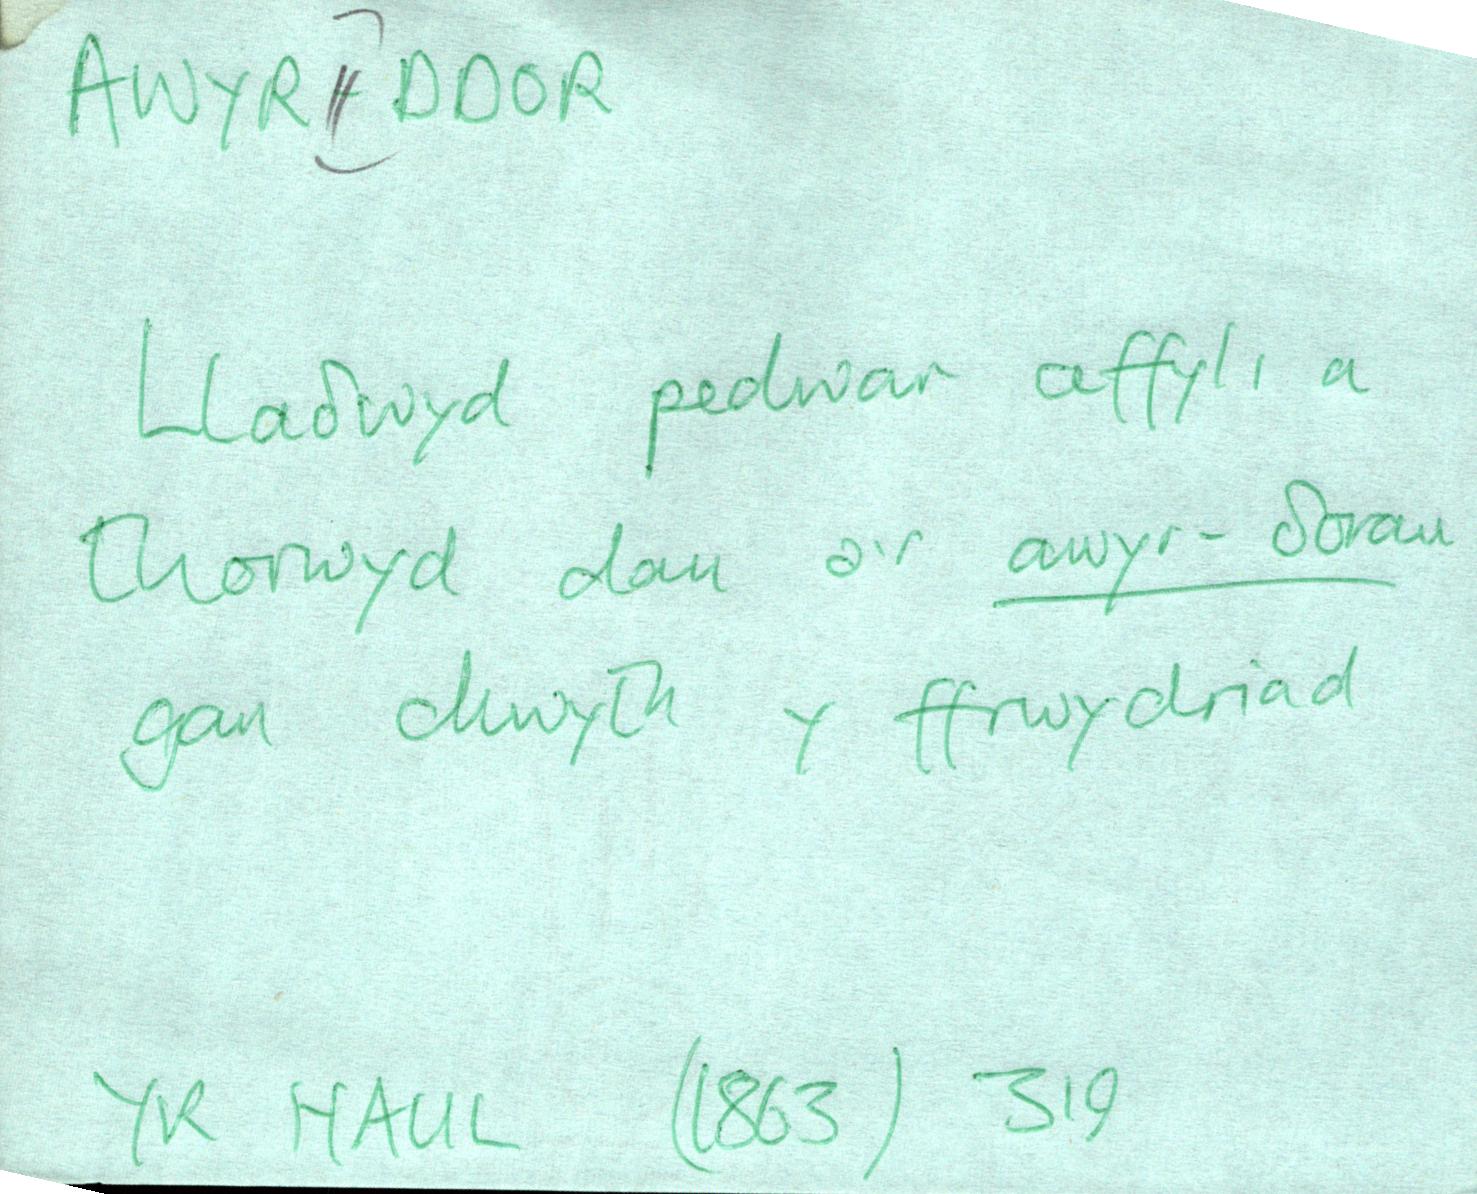 AWYR-DDOR
Llaδwyd pedwar ceffyl, a
thorwyd dau o'r awyr-δorau
gan chwyth y ffrwydriad
YR HAUL (1863) 319